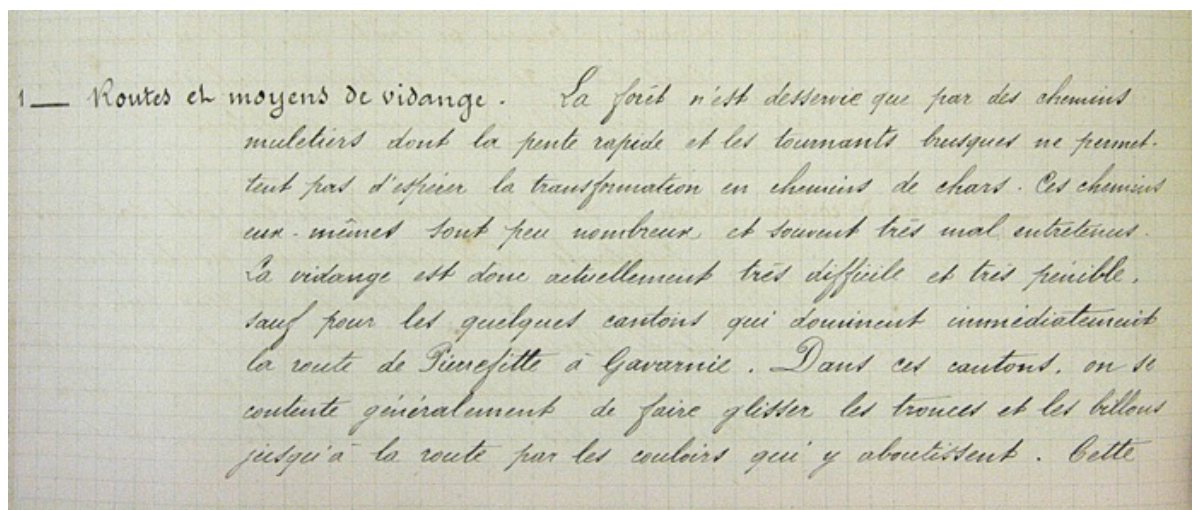 1 — Routes et moyens de vidange. La forêt n'est desservie que par des chemins
muletiers dont la pente rapide et les tournants brusques ne permet-
tent pas d'espérer la transformation en chemins de chars. Ces chemins
eux-mêmes sont peu nombreux et souvent très mal entretenus.
La vidange est donc actuellement très difficile et très pénible,
sauf pour les quelques cantons qui dominent immédiatement
la route de Pierrefitte à Gavarnie. Dans ces cantons, on se
contente généralement de faire glisser les tronces et les billons
jusqu'à la route par les couloirs qui y aboutissent. Cette